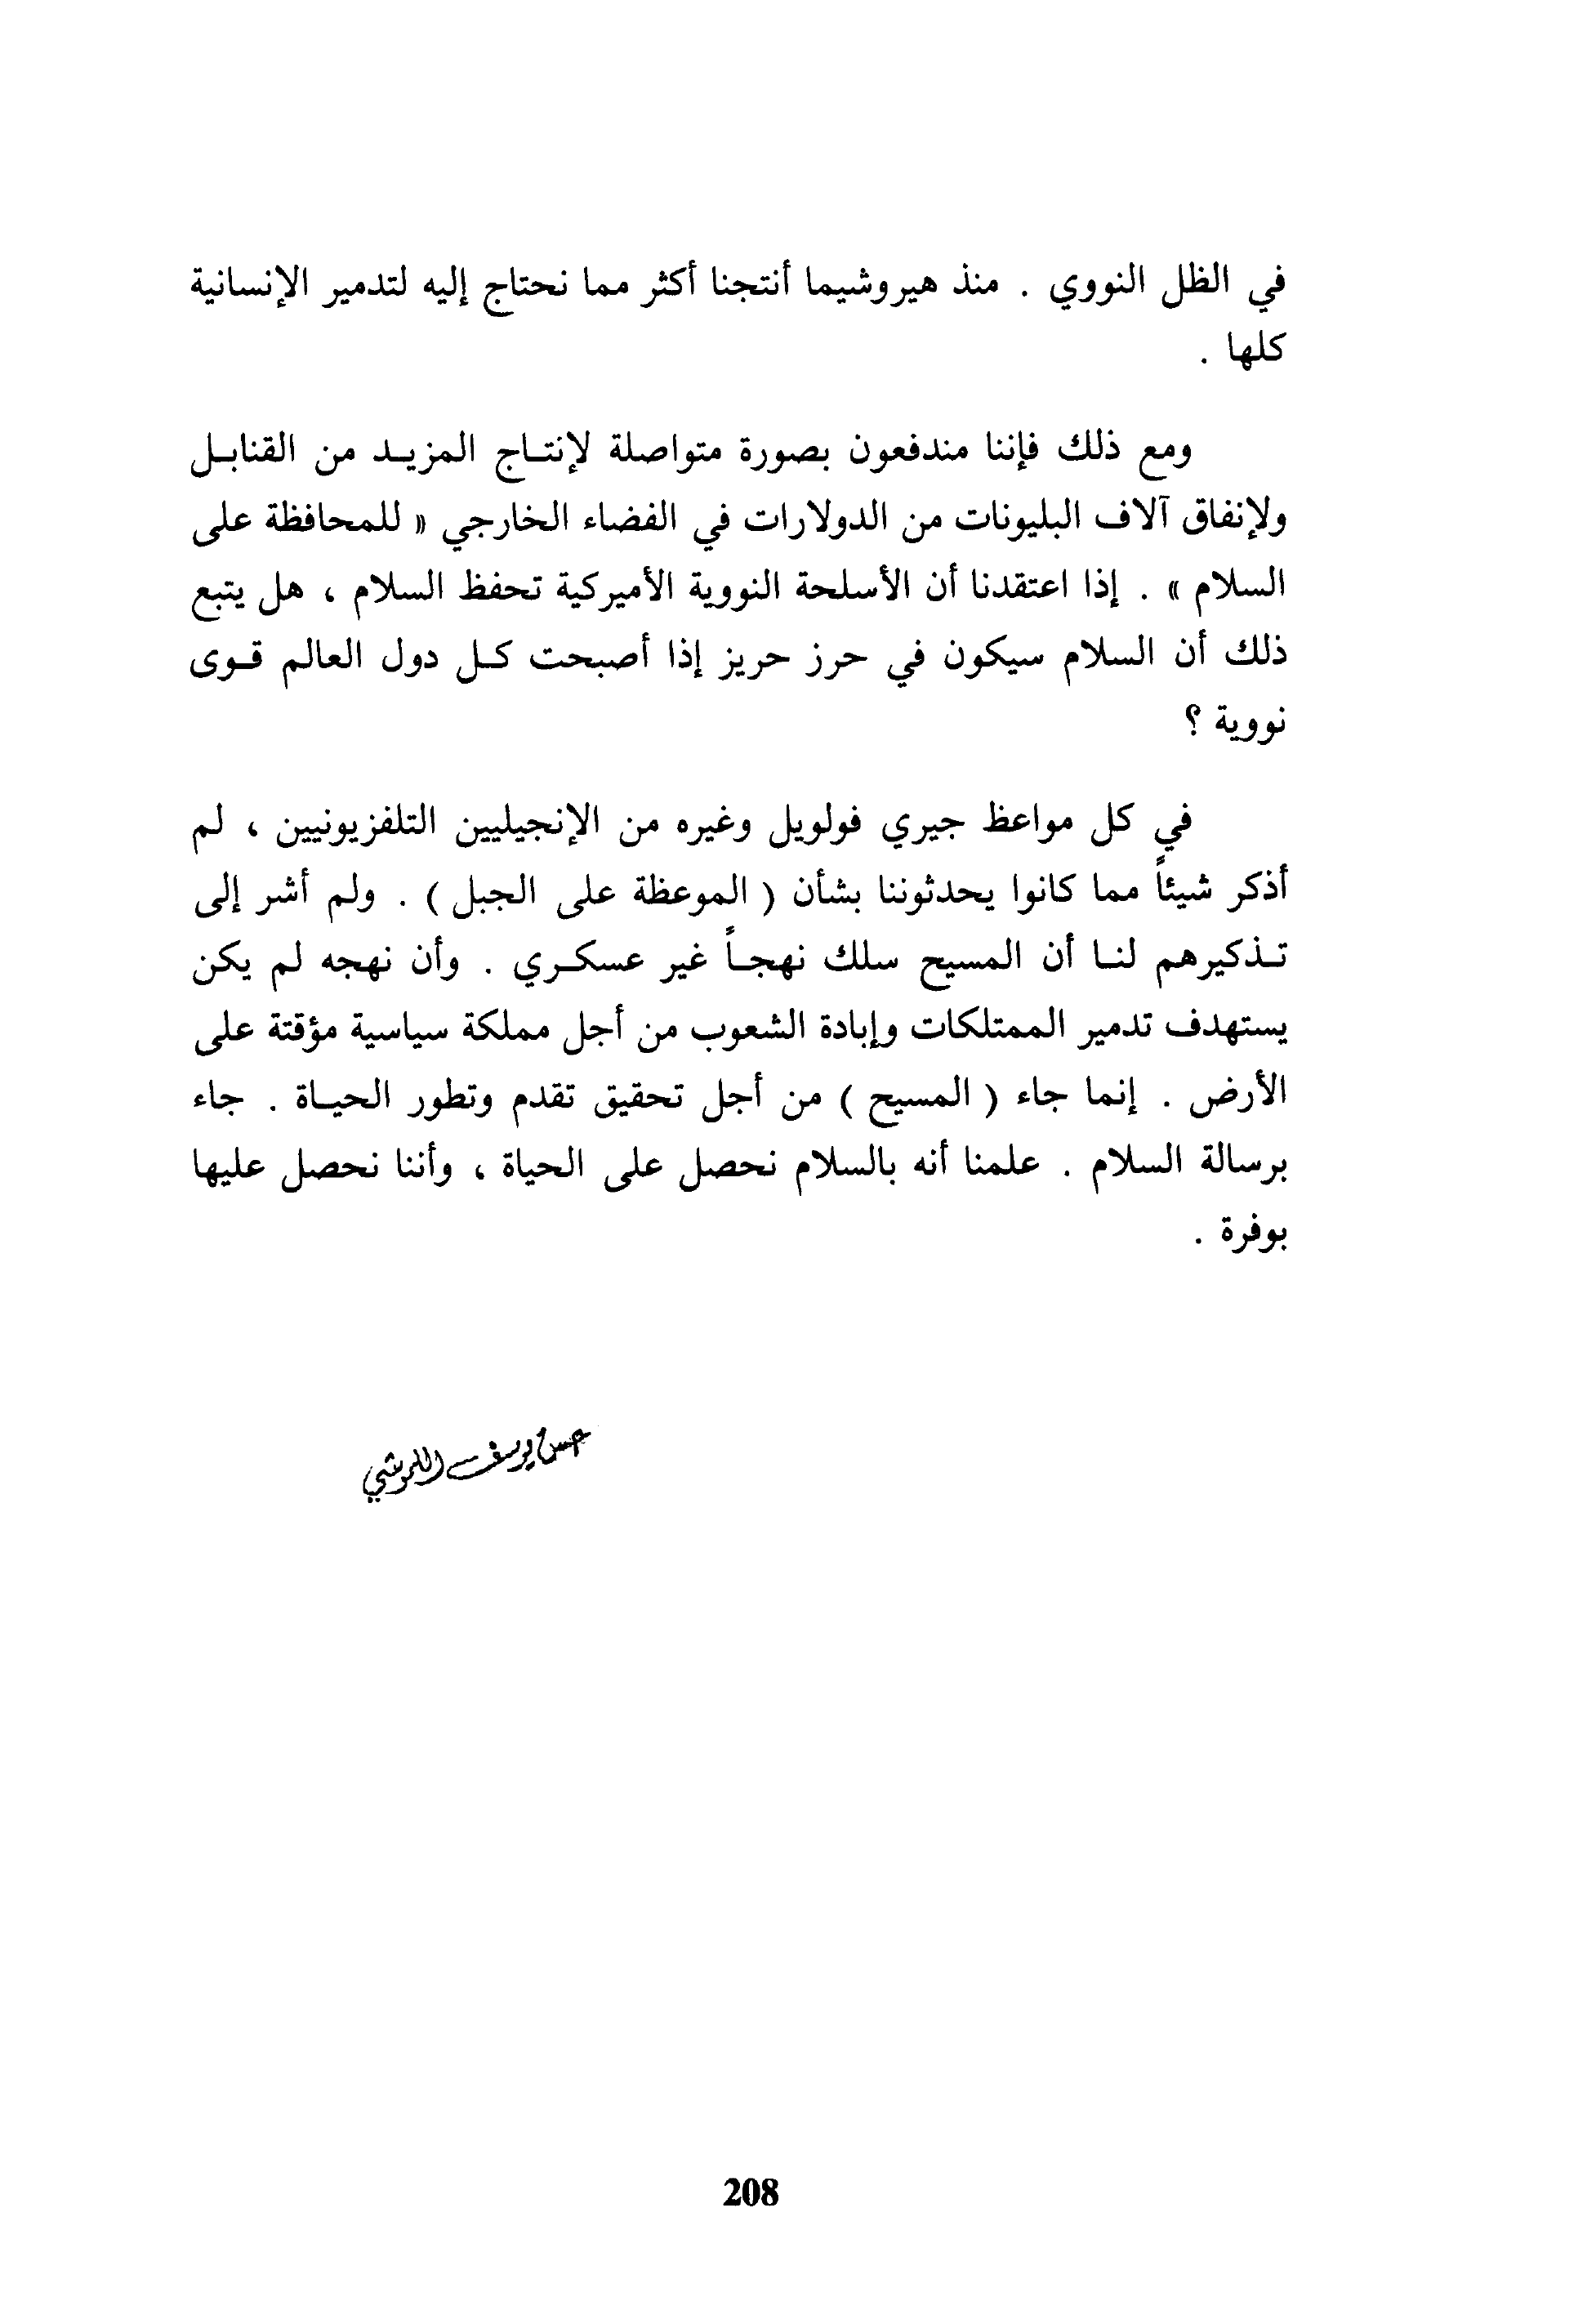 في الظل النووي . منذ هيروشيما أنتجنا أكثر مما نحتاج إليه لتدمير الإنسانية
كلها .
ومع ذلك فإننا مندفعون بصورة متواصلة لإنتاج المزيد من القنابل
ولإنفاق آلاف البليونات من الدولارات في الفضاء الخارجي « للمحافظة على
السلام » . إذا اعتقدنا أن الأسلحة النووية الأميركية تحفظ السلام ، هل يتبع
ذلك أن السلام سيكون في حرز حريز إذا أصبحت كل دول العالم قوى
نووية ؟
في كل مواعظ جيري فولويل وغيره من الإنجيليين التلفزيونيين ، لم
أذكر شيئاً مما كانوا يحدثوننا بشأن ( الموعظة على الجبل ) . ولم أشر إلى
تذكيرهم لنا أن المسيح سلك نهجاً غير عسكري . وأن نهجه لم يكن
يستهدف تدمير الممتلكات وإبادة الشعوب من أجل مملكة سياسية مؤقتة على
الأرض . إنما جاء ( المسيح ) من أجل تحقيق تقدم وتطور الحياة . جاء
برسالة السلام . علمنا أنه بالسلام نحصل على الحياة ، وأننا نحصل عليها
بوفرة .
يوسف
208